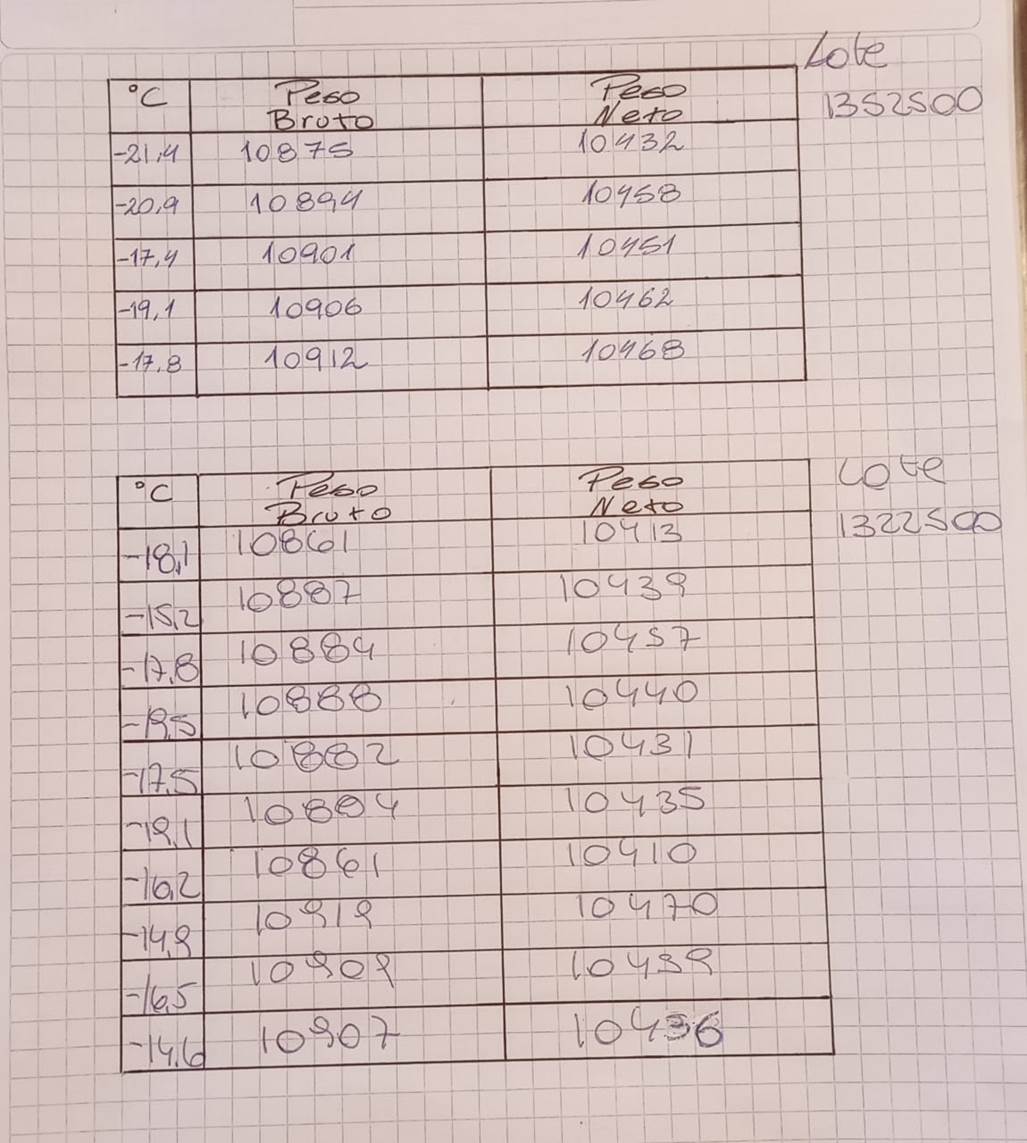 Lote
1352500
°C Peso Bruto Peso Neto
-21,4 10875 10432
-20,9 10894 10458
-17,4 10901 10451
-19,1 10906 10462
-17,8 10912 10468
Lote
1322500
°C Peso Bruto Peso Neto
-18,1 10861 10413
-15,2 10887 10439
-17,8 10884 10457
-19,5 10888 10440
-17,5 10882 10431
-19,1 10884 10435
-16,2 10861 10410
-14,9 10919 10470
-16,5 10909 10459
-14,6 10907